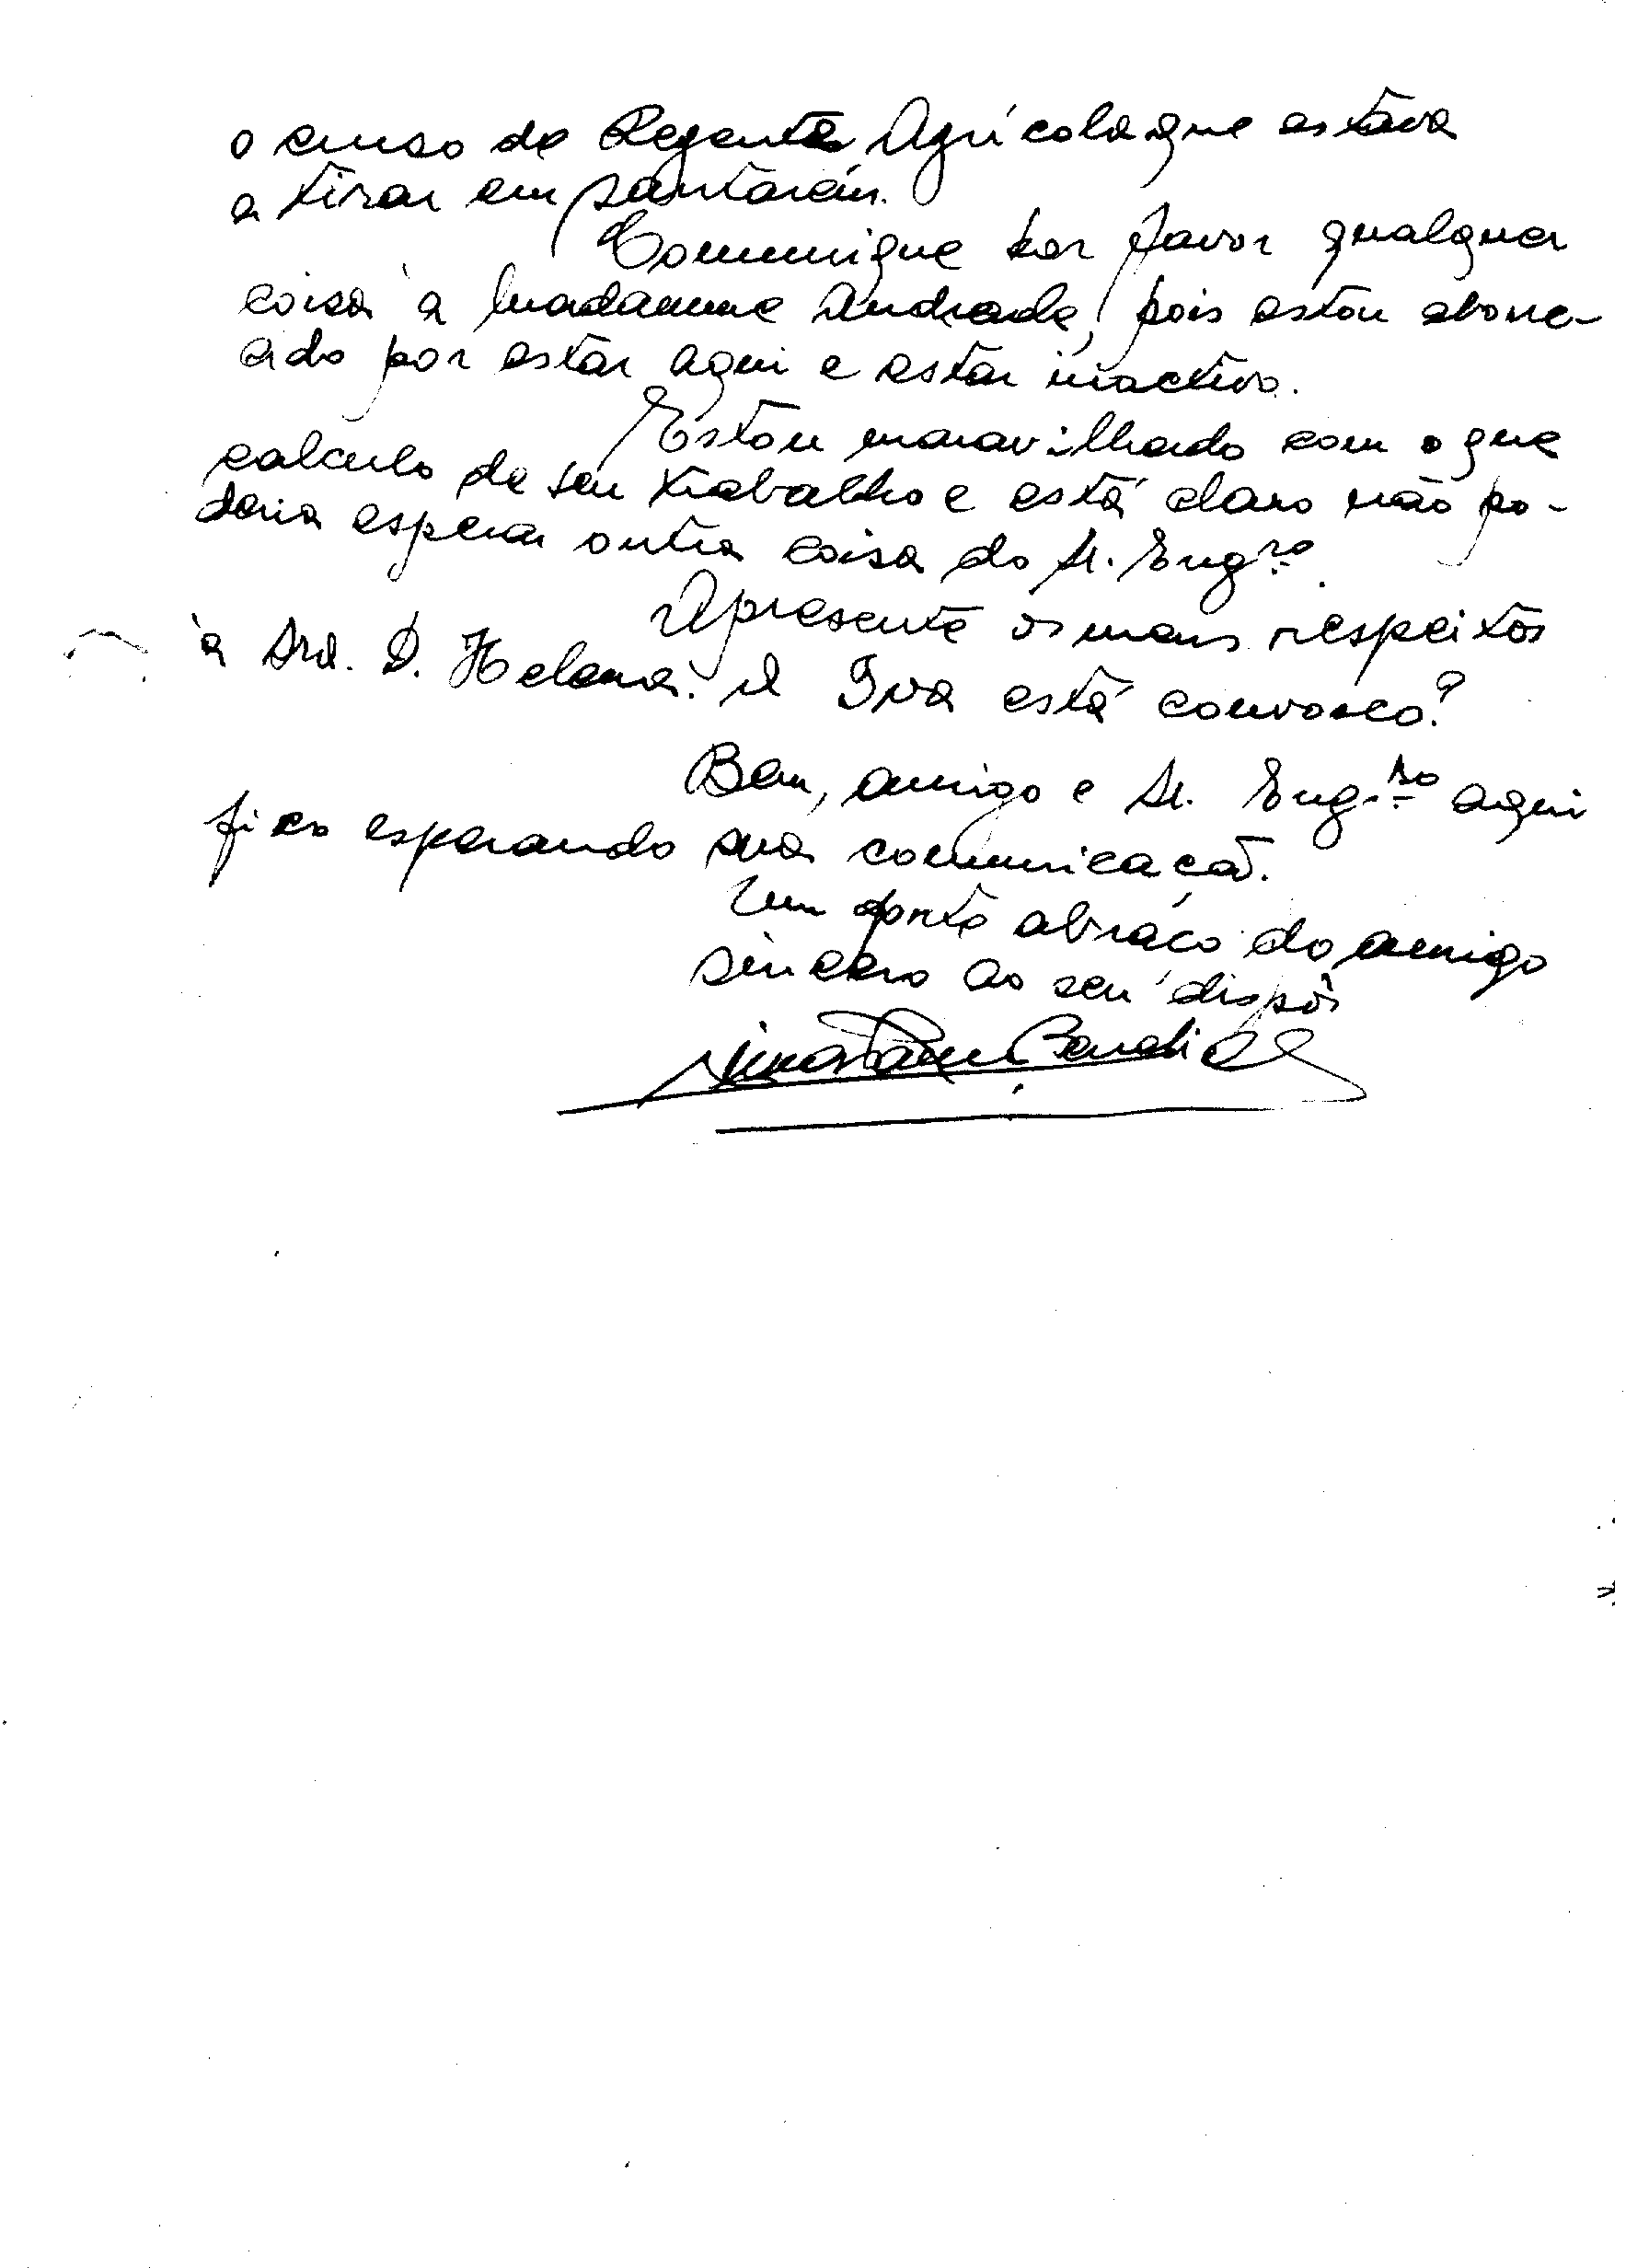 o curso de Regente Agrícola que estava
a tirar em Santarém.
Comunique por favor qualquer
coisa à Madamme Andrade, pois estou aborre-
cido por estar aqui e estar inactivo.
Estou maravilhado com o que
calculo de seu trabalho e está claro não po-
deria esperar outra coisa do Sr. Engro.
Apresente os meus respeitos
à Sra. D. Helena. A Iva está convosco?
Bem, amigo e Sr. Engro aqui
fico esperando sua comunicação.
Um forte abraço do amigo
sincero ao seu dispôr